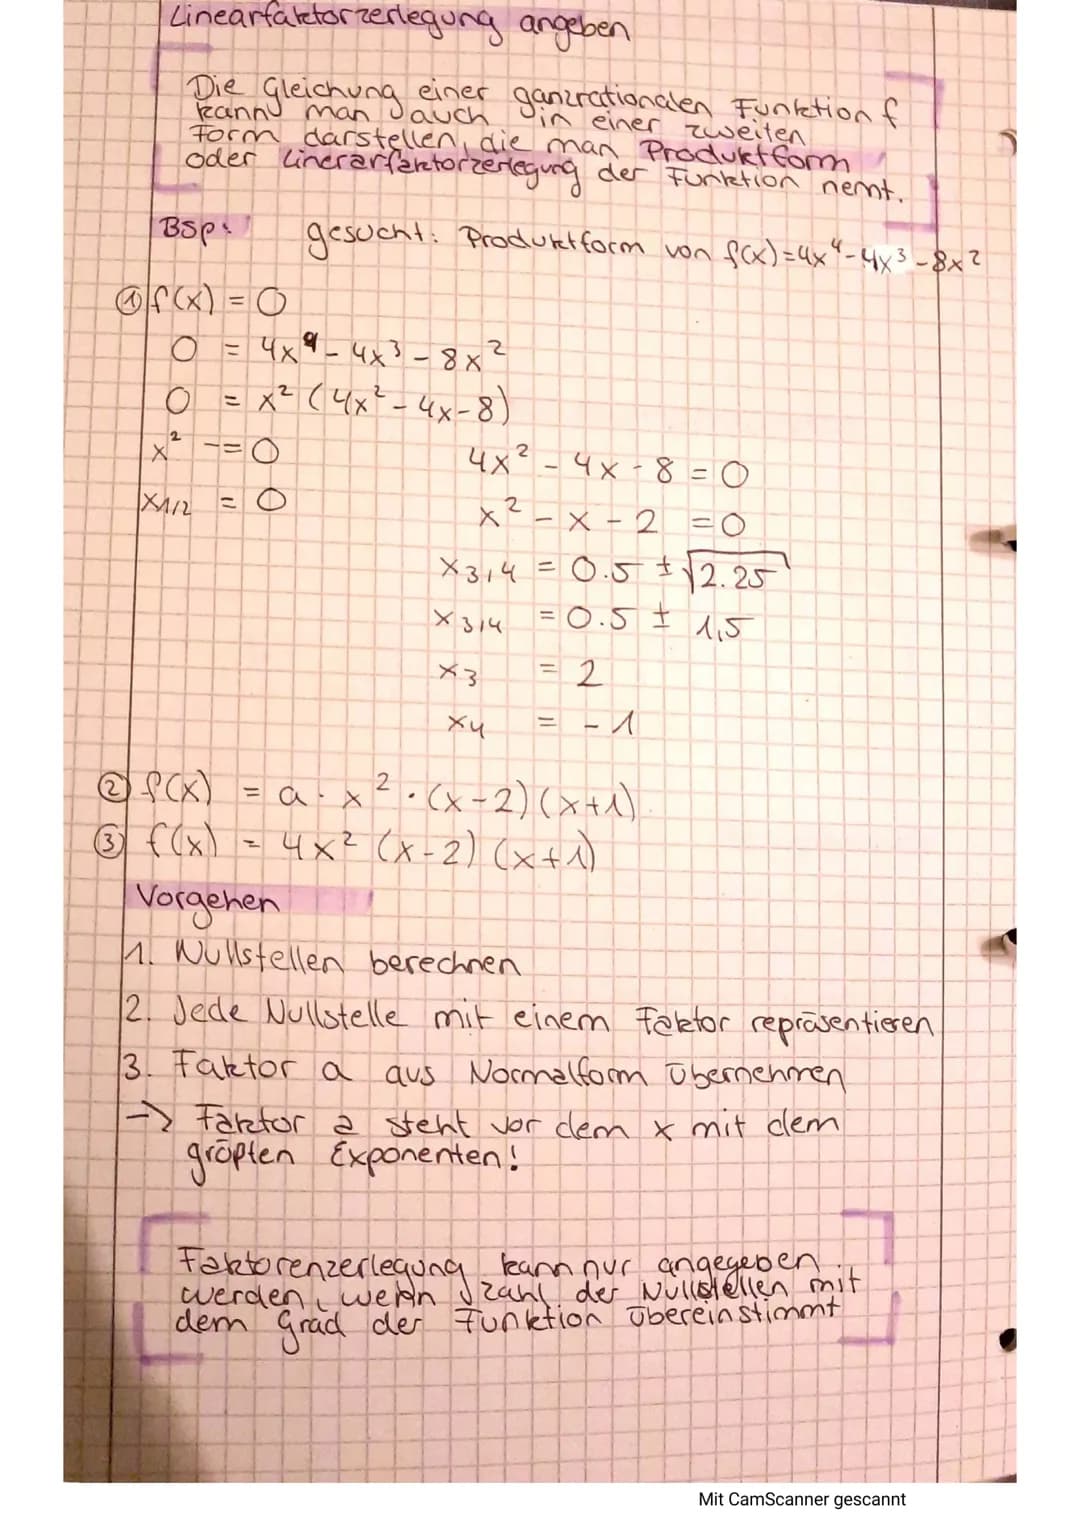 Linearfaktorzerlegung angeben
Die Gleichung einer ganzrationalen Funktion f
kann man auch in einer zweiten
Form darstellen, die man Produktform
oder Linerarfaktorzerlegung der Funktion nennt.
Bsp: gesucht: Produktform von f(x)=4x⁴-4x³-8x²
① f(x) = 0
0 = 4x⁴ - 4x³ - 8x²
0 = x² (4x² - 4x - 8)
x² = 0 4x² - 4x - 8 = 0
x1/2 = 0 x² - x - 2 = 0
x3,4 = 0.5 ± √2.25
x3/4 = 0.5 ± 1,5
x3 = 2
x4 = -1
② f(x) = a · x² · (x-2)(x+1)
③ f(x) = 4x² (x-2) (x+1)
Vorgehen
1. Nullstellen berechnen
2. Jede Nullstelle mit einem Faktor repräsentieren
3. Faktor a aus Normalform übernehmen
-> Faktor a steht vor dem x mit dem
größten Exponenten!
Faktorenzerlegung kann nur angegeben
werden, wenn Zahl der Nullstellen mit
dem Grad der Funktion übereinstimmt
Mit CamScanner gescannt